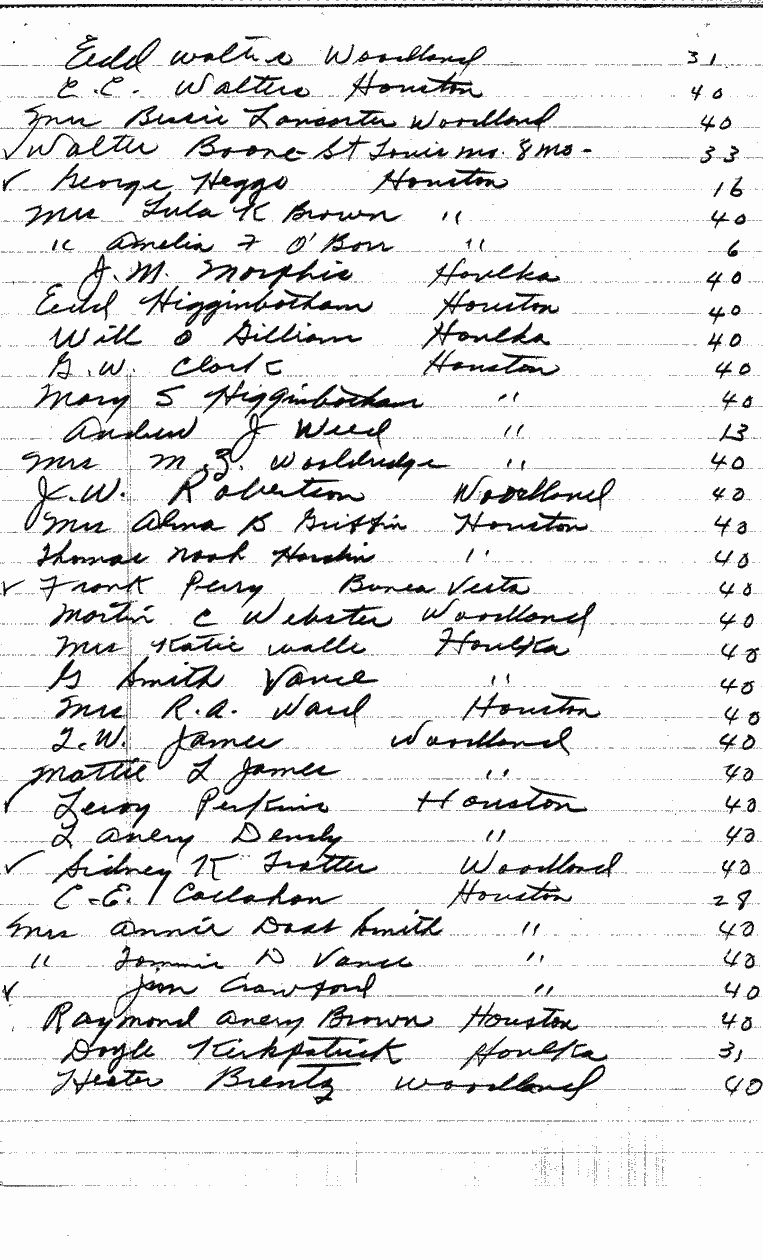 Eudd Walters Woodland 31
E.C. Walters Houston 40
Mrs Bessie Lancaster Woodland 40
✓ Walter Boone St Louis mo. 8 mo - 33
✓ George Heggs Houston 16
Mrs Lula K Brown " 40
" Amelia F O'Barr " 6
J.M. Morphis Houlka 40
Eudd Higginbotham Houston 40
Will O Gilliam Houlka 40
G.W. Clark Houston 40
Mary S Higginbotham " 40
Andrew J Weed " 13
Mrs M.Z. Wooldridge " 40
J.W. Robertson Woodland 40
Mrs Alma B Griffin Houston 40
Thomas Noah Hardin " 40
✓ Frank Perry Bunea Vesta 40
Martin C Webster Woodland 40
Mrs Katie Walls Houlka 40
G Smith Vance " 40
Mrs R.A. Ward Houston 40
T.W. James Woodland 40
Mattie L James " 40
✓ Leroy Perkins Houston 40
L Avery Dendy " 40
✓ Sidney K Tratter Woodland 40
C.E. Callahan Houston 28
Mrs Annie Doss Smith " 40
" Tommie D Vance " 40
✓ Jim Crawford " 40
Raymond Avery Brown Houston 40
Doyle Kirkpatrick Houlka 31
Hester Brentz Woodland 40